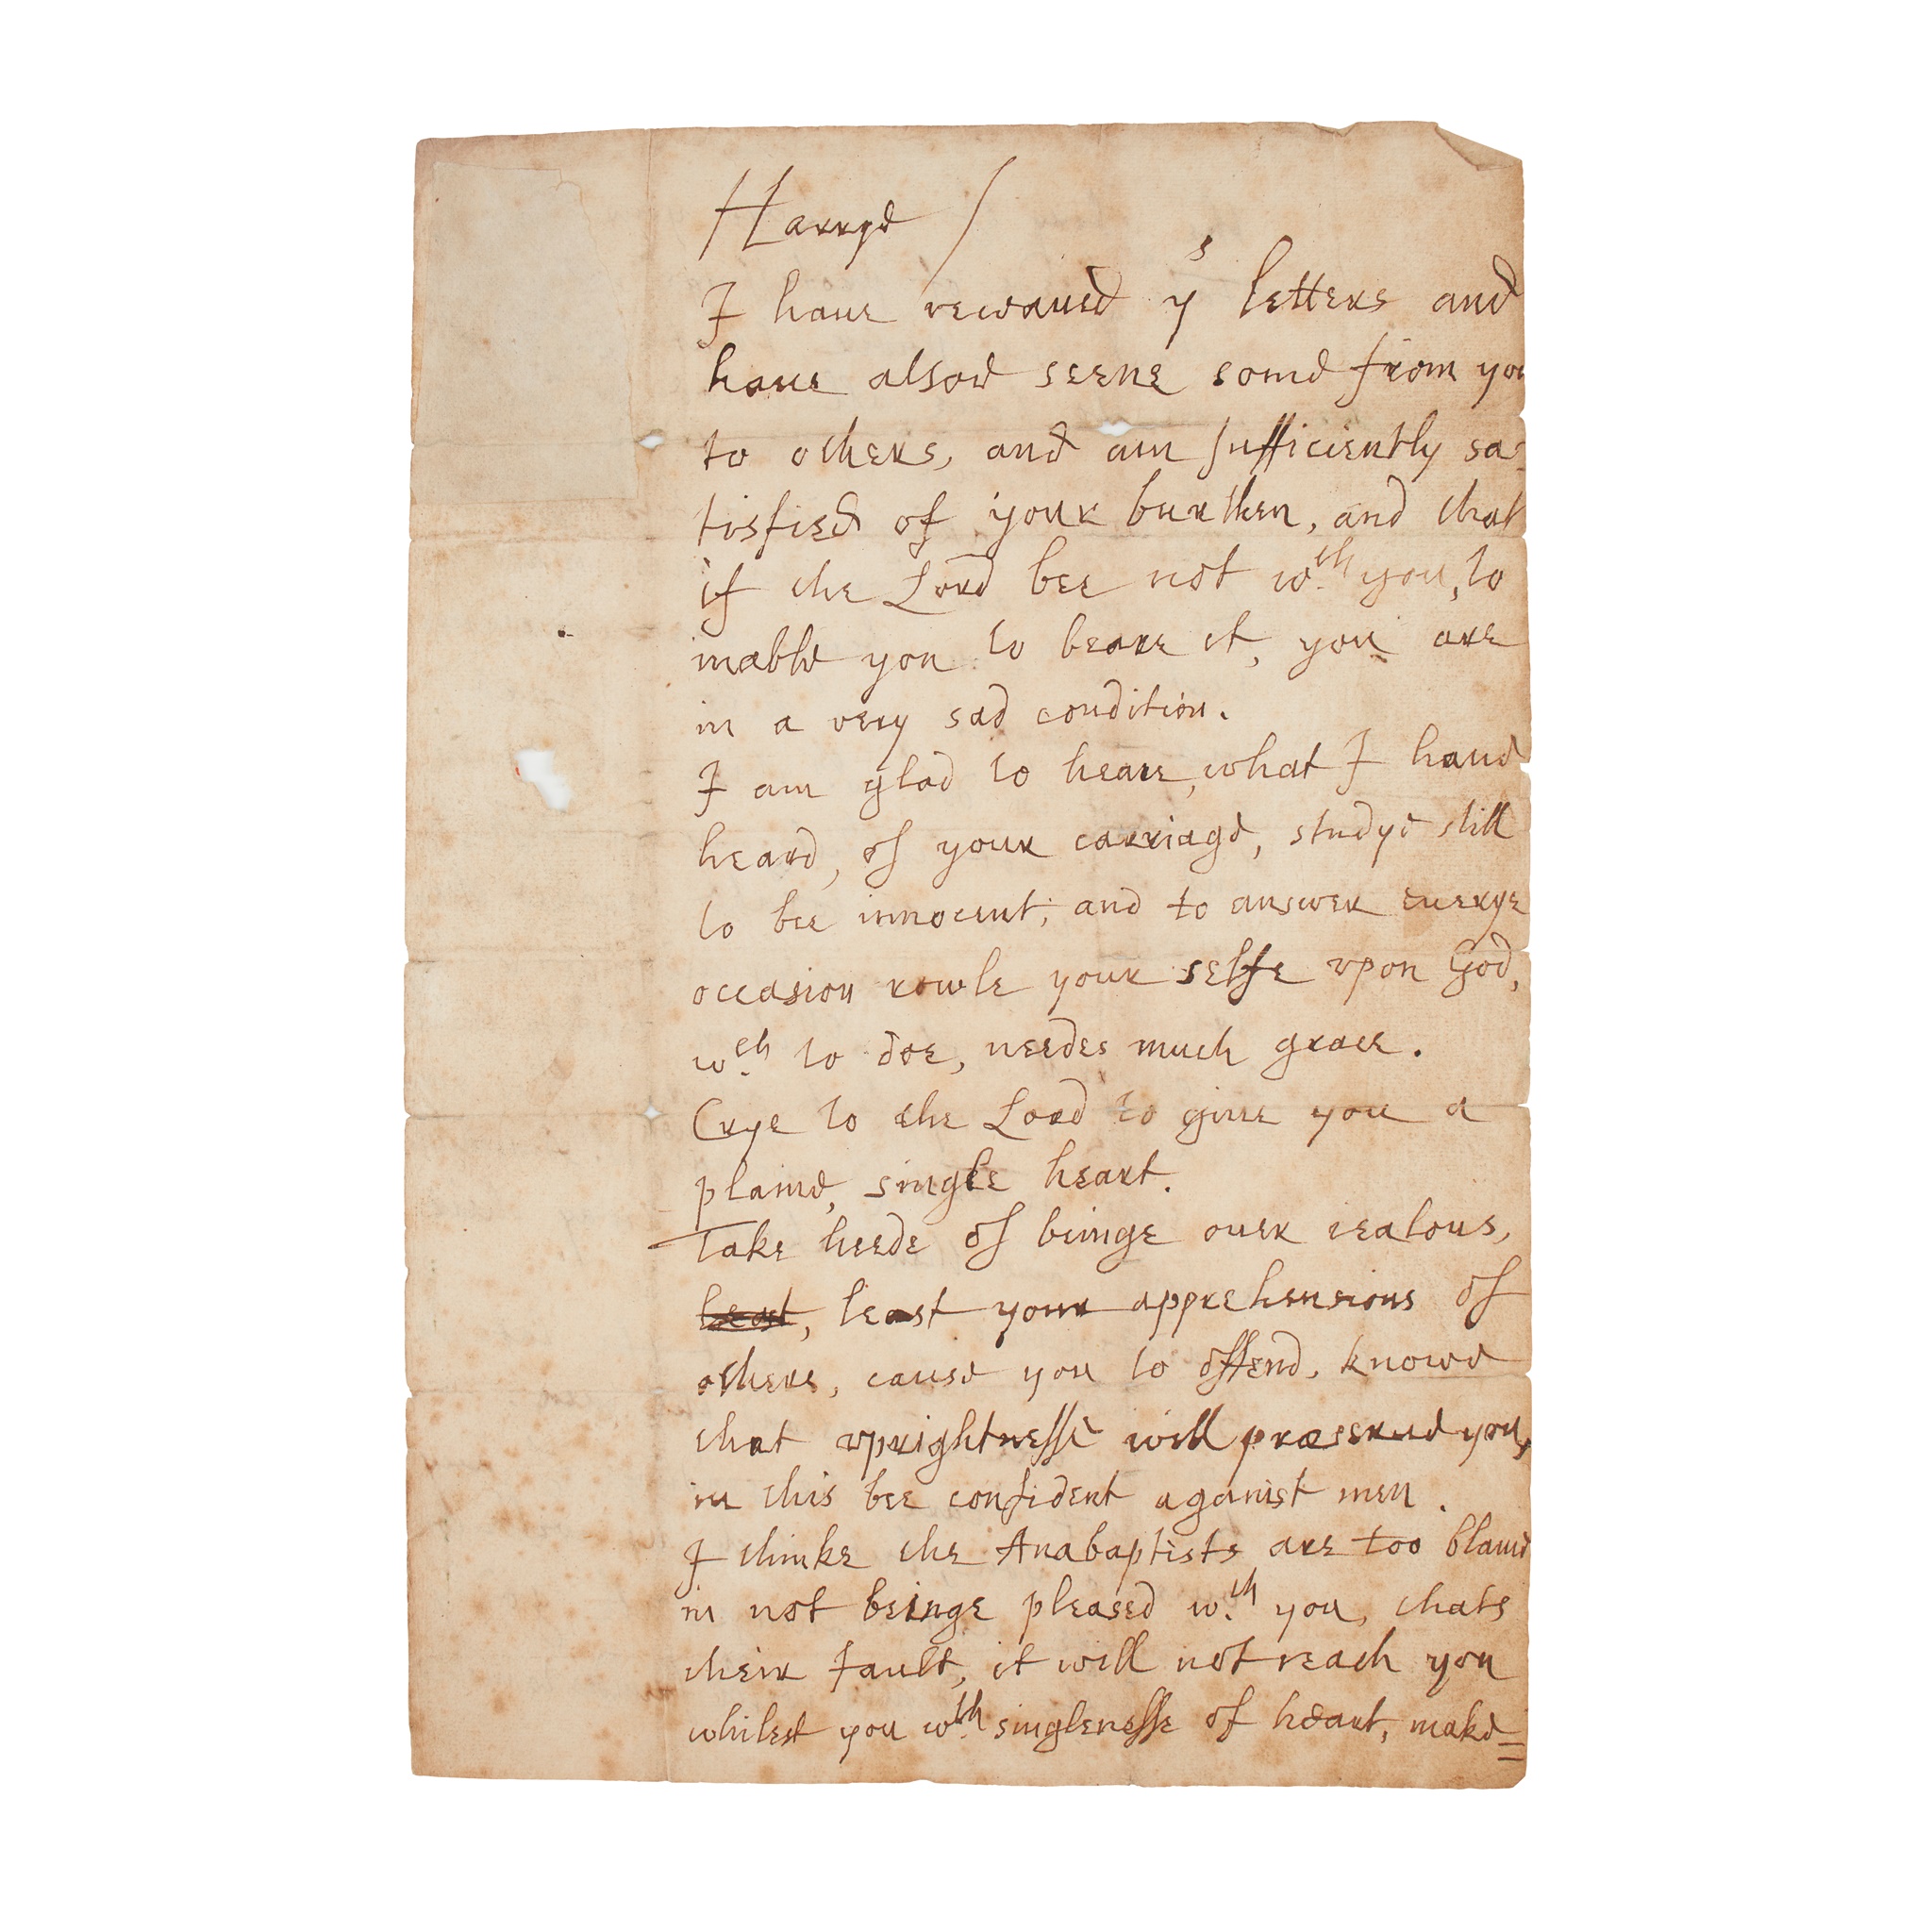 Harrye /
I haue receaued yͬˢ letters and
haue alsoe seene some from you
to others, and am sufficiently sa=
tisfied of your burthen, and that
if the Lord bee not wth you, to
inable you to beare it, you are
in a very sad condition.
I am glad to heare, what I haue
heard, of your carriage, studye still
to bee innocent; and to answer euerye
occasion rowle your selfe vpon God,
wch to doe, needes much grace.
Crye to the Lord to giue you a
plaine, single heart.
Take heede of beinge ouer iealous,
least, least your apprehensions of
others, cause you to offend, knowe
that vprightnesse will præserue you,
in this bee confident against men.
I thinke the Anabaptists are too blame
in not beinge pleased wth you, thats
their fault, it will not reach you
whilest you wth singlenesse of heart, make=